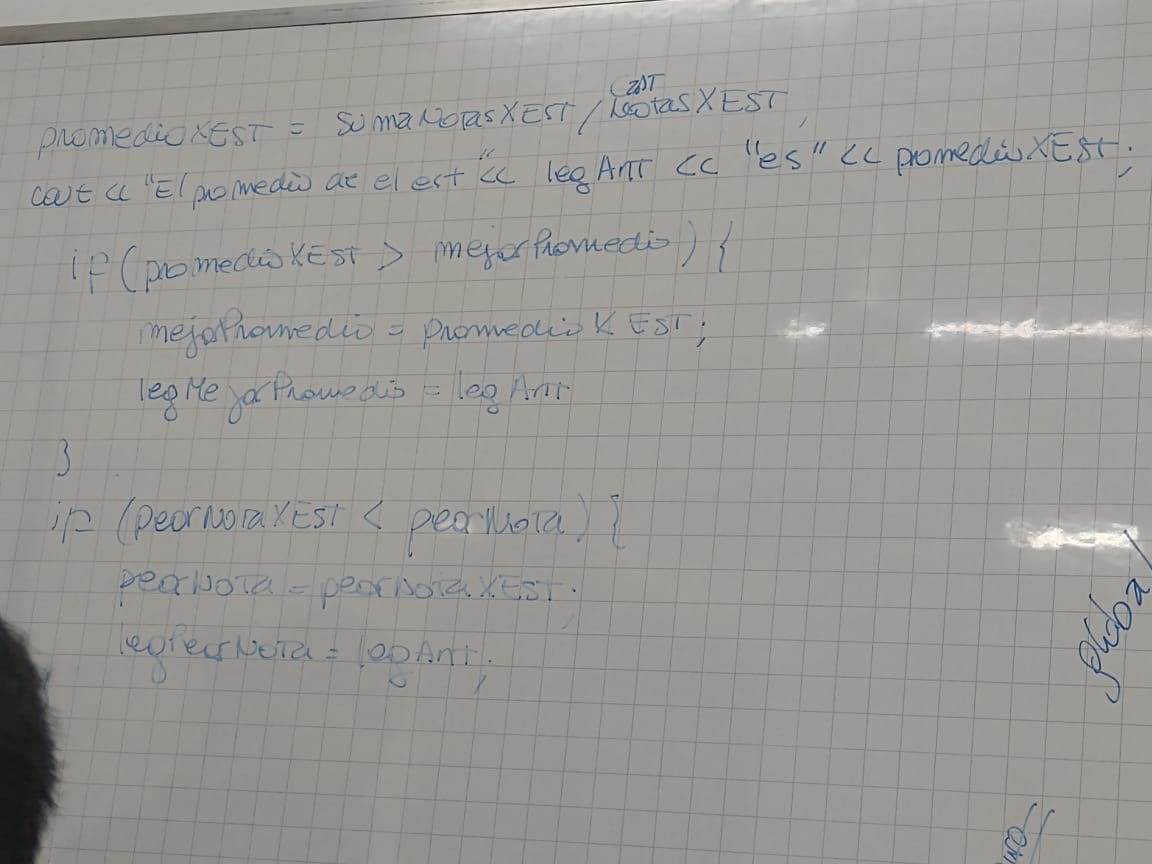 promedioXEST = sumaNotasXEST / CantNotasXEST;
cout << "El promedio de el est" << legAnt << "es" << promedioXEST;
if (promedioXEST > mejorPromedio) {
mejorPromedio = promedioXEST;
legMejorPromedio = legAnt
}
if (peorNotaXEST < peorNota) {
peorNota = peorNotaXEST;
legPeorNota = legAnt;